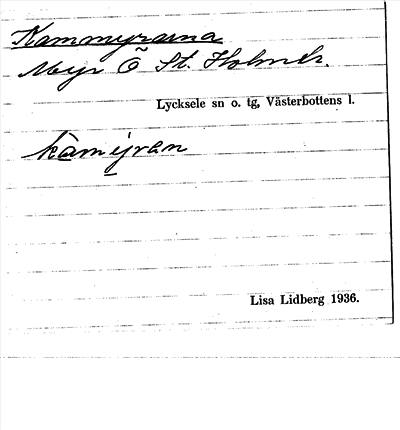 Kammyrarna
Myr Ö St. Holmtr.
Lycksele sn o. tg, Västerbottens l.
kamyran
Lisa Lidberg 1936.